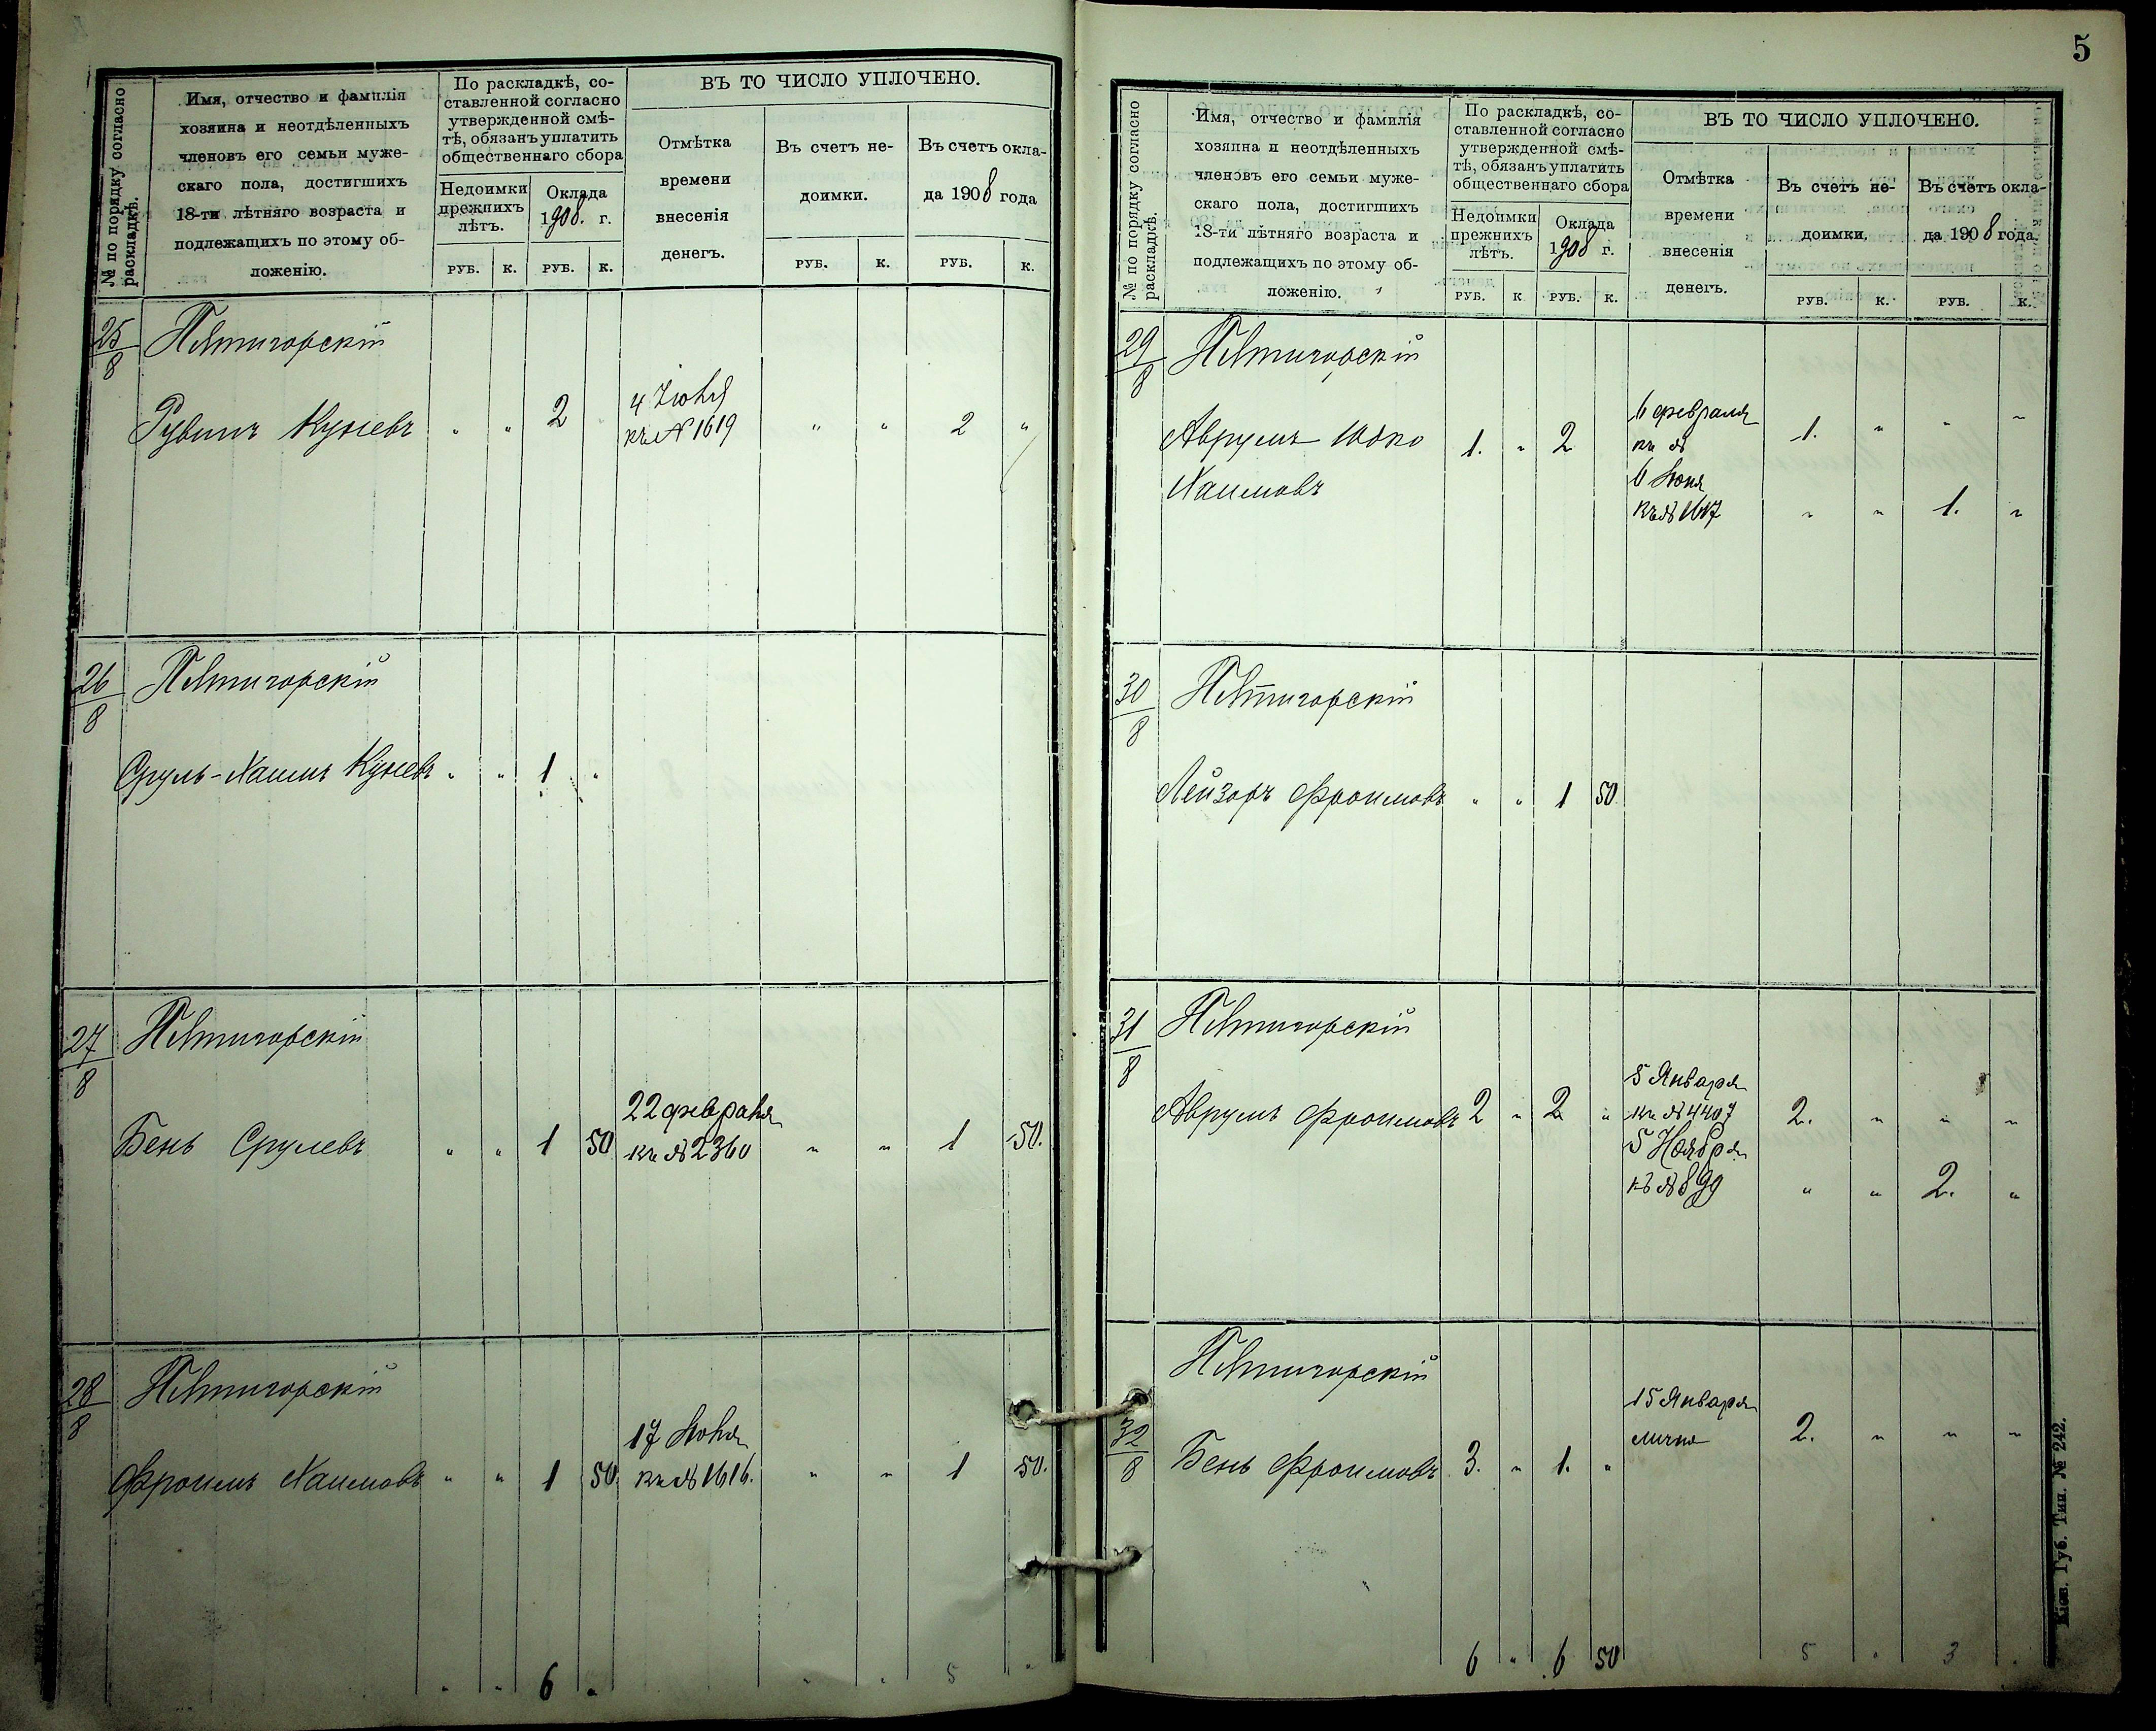 № по порядку согласно
раскладкѣ.
Имя, отчество и фамилія
хозяина и неотдѣленныхъ
членовъ его семьи муже-
скаго пола, достигшихъ
18-ти лѣтняго возраста и
подлежащихъ по этому об-
ложенію.
По раскладкѣ, со-
ставленной согласно
утвержденной смѣ-
тѣ, обязанъ уплатить
общественнаго сбора
Недоимки
прежнихъ
лѣтъ.
Оклада
1908 г.
ВЪ ТО ЧИСЛО УПЛОЧЕНО.
Отмѣтка
времени
внесенія
денегъ.
Въ счетъ не-
доимки.
Въ счетъ окла-
да 1908 года
РУБ. К. РУБ. К. РУБ. К. РУБ. К.
25/8 Пятигорскій
Рувинъ Куневъ " " 2 " 4 Іюня " " 2 "
къ № 1619
26/8 Пятигорскій
Сруль-Хаимъ Куневъ " " 1 "
27/8 Пятигорскій
Бень Срулевъ " " 1 50 22 февраля " " 1 50.
къ № 2360
28/8 Пятигорскій
Фроимъ Хаимовъ " " 1 50 17 Іюня " " 1 50.
къ № 1616.
" " 6 " " " 5 "
5
№ по порядку согласно
раскладкѣ.
Имя, отчество и фамилія
хозяина и неотдѣленныхъ
членовъ его семьи муже-
скаго пола, достигшихъ
18-ти лѣтняго возраста и
подлежащихъ по этому об-
ложенію.
По раскладкѣ, со-
ставленной согласно
утвержденной смѣ-
тѣ, обязанъ уплатить
общественнаго сбора
Недоимки
прежнихъ
лѣтъ.
Оклада
1908 г.
ВЪ ТО ЧИСЛО УПЛОЧЕНО.
Отмѣтка
времени
внесенія
денегъ.
Въ счетъ не-
доимки.
Въ счетъ окла-
да 1908 года
РУБ. К РУБ. К. РУБ. К. РУБ. К.
29/8 Пятигорскій
Аврумъ 1. " 2 6 февраля 1. " " "
Хаимовъ къ №
6 Іюня
къ № 1617 " " 1. "
30/8 Пятигорскій
Лейзоръ Фроимовъ " " 1 50
31/8 Пятигорскій
Аврумъ Фроимовъ 2 " 2 " 8 Января
къ № 4407 2. " " "
5 Ноября
къ № 899 " " 2. "
Пятигорскій
32/8 Бень Фроимовъ 3. " 1. " 15 Января 2. " " "
лично
6 " 6 50 5 " 3 .
Кіев. Губ. Тип. № 242.